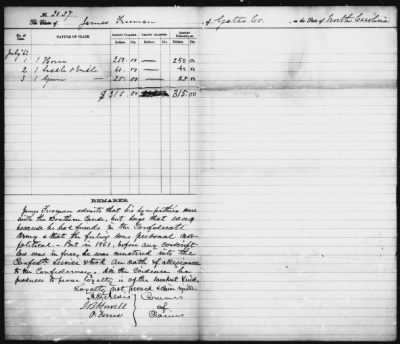 No. 2127
The Claim of James Freeman, of Gates Co. in the State of North Carolina
No. of Item. NATURE OF CLAIM. AMOUNT CLAIMED. AMOUNT ALLOWED. AMOUNT DISALLOWED.
Dollars. Cts. Dollars. Cts. Dollars. Cts.
July '62
1 1 Horse 250.00 — 250.00
2 1 Saddle & Bridle 40.00 — 40.00
3 1 Gun — 25.00 — 25.00
$ 315.00 315.00
REMARKS.
James Freeman admits that his sympathies were
with the Southern Cause, but says that it was
because he had friends in the Confederate
Army & that the feeling was personal not
political. – But in 1861, before any conscript
law was in force, he was mustered into the
Confed. service & took an oath of allegiance
to the Confederacy. All the evidence he
produces to prove loyalty is of the weakest kind.
Loyalty not proved & claim
A.O. Aldis
J.B. Howell
O. Ferriss
Commrs
of
Claims